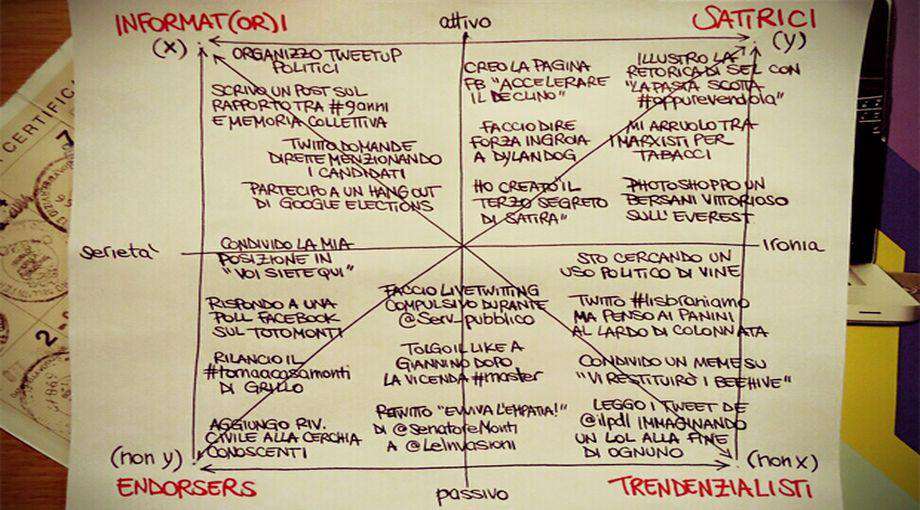 INFORMAT(OR)I
attivo
SATIRICI
(x)
(y)
ORGANIZZO TWEETUP
POLITICI
SCRIVO UN POST SUL
RAPPORTO TRA #9anni
E MEMORIA COLLETTIVA
TWITTO DOMANDE
DIRETTE MENZIONANDO
I CANDIDATI
PARTECIPO A UN HANGOUT
DI GOOGLE ELECTIONS
CREO LA PAGINA
FB "ACCELERARE
IL DECLINO"
FACCIO DIRE
FORZA INGROIA
A DYLANDOG
HO CREATO IL
TERZO SEGRETO
DI SATIRA"
ILLUSTRO LA
RETORICA DI SEL CON
"LA PASTA SCOTTA
#oppurevendola"
MI ARRUOLO TRA
I MARXISTI PER
TABACCI
PHOTOSHOPPO UN
BERSANI VITTORIOSO
SULL'EVEREST
serietà
ironia
CONDIVIDO LA MIA
POSIZIONE IN
"VOI SIETE QUI"
RISPONDO A UNA
POLL FACEBOOK
SUL TOTOMONTI
RILANCIO IL
#tornaacasamonti
DI GRILLO
AGGIUNGO RIV.
CIVILE ALLA CERCHIA
CONOSCENTI
FACCIO LIVETWITTING
COMPULSIVO DURANTE
@Serv_pubblico
TOLGO IL LIKE A
GIANNINO DOPO
LA VICENDA #master
RETWITTO "EVVIVA L'EMPATIA!"
DI @SenatoreMonti
A @LeInvasioni
STO CERCANDO UN
USO POLITICO DI VINE
TWITTO #lisbraniamo
MA PENSO AI PANINI
AL LARDO DI COLONNATA
CONDIVIDO UN MEME SU
"VI RESTITUIRÒ I BEEHIVE"
LEGGO I TWEET DE
@ilpdl IMMAGINANDO
UN LOL ALLA FINE
DI OGNUNO
(non y)
(non x)
ENDORSERS
passivo
TRENDENZIALISTI
CERTIFIC